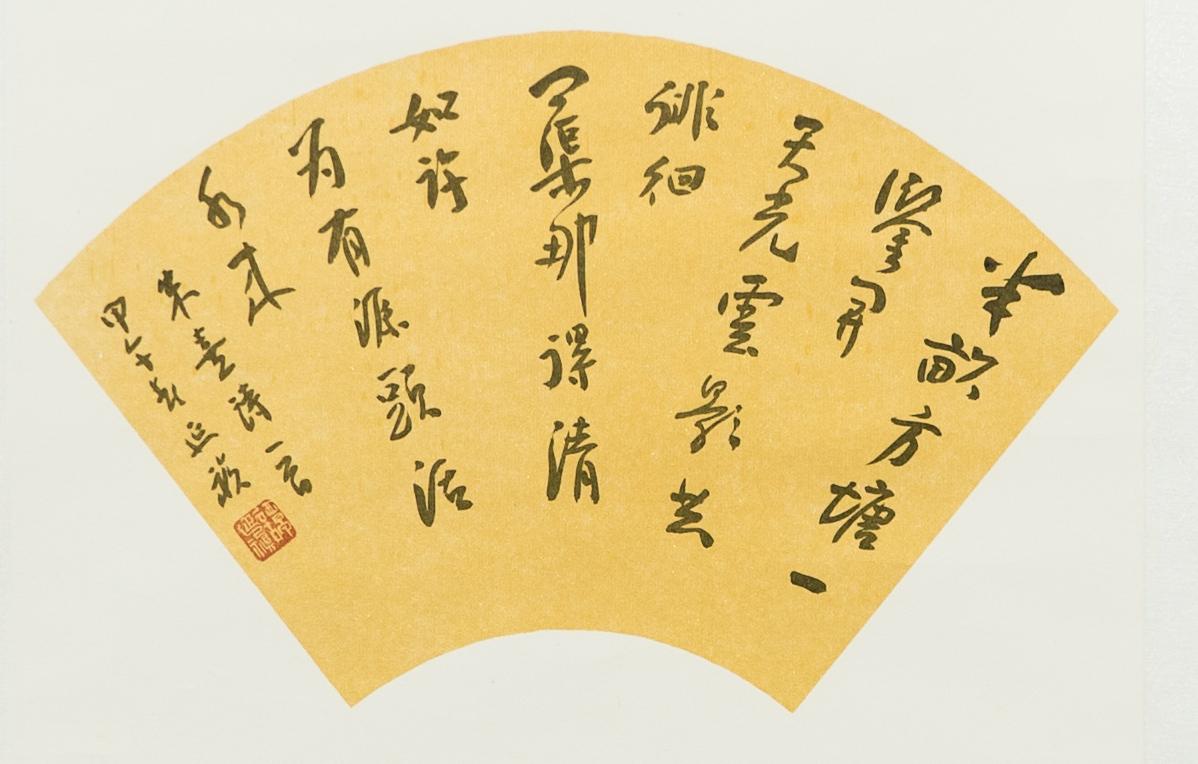 半畝方塘一
鑒開
天光雲影共
徘徊
問渠那得清
如許
为有源頭活
水来
朱熹詩一首
甲午春延齡